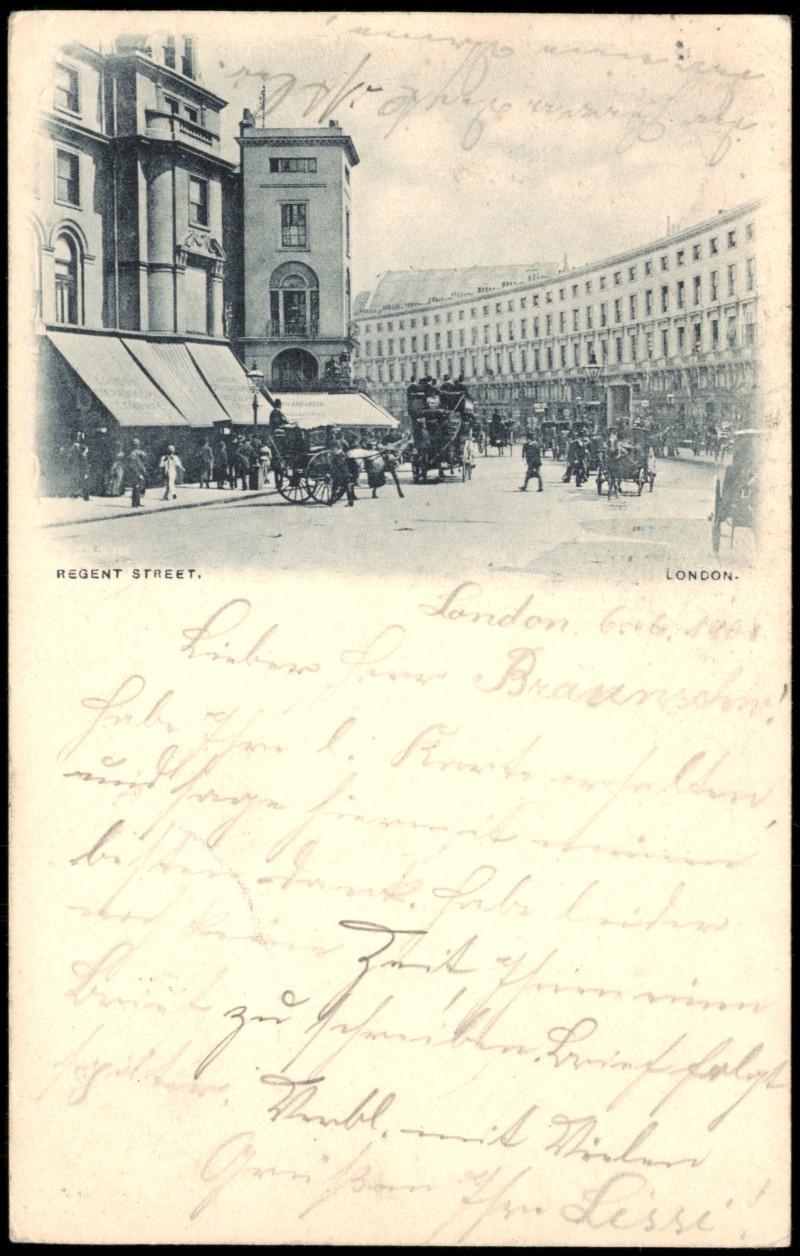 REGENT STREET.
LONDON.
London. 6. 6. 1901
Lieber Herr Braunschw!
habe Ihre l. Karte erhalten,
und sage hiermit meinen
besten Dank. Habe leider
noch keine Zeit, Ihnen einen
Brief zu schreiben. Brief folgt
später.
Verbl. mit Vielen
Grüßen Ihre Lissi!